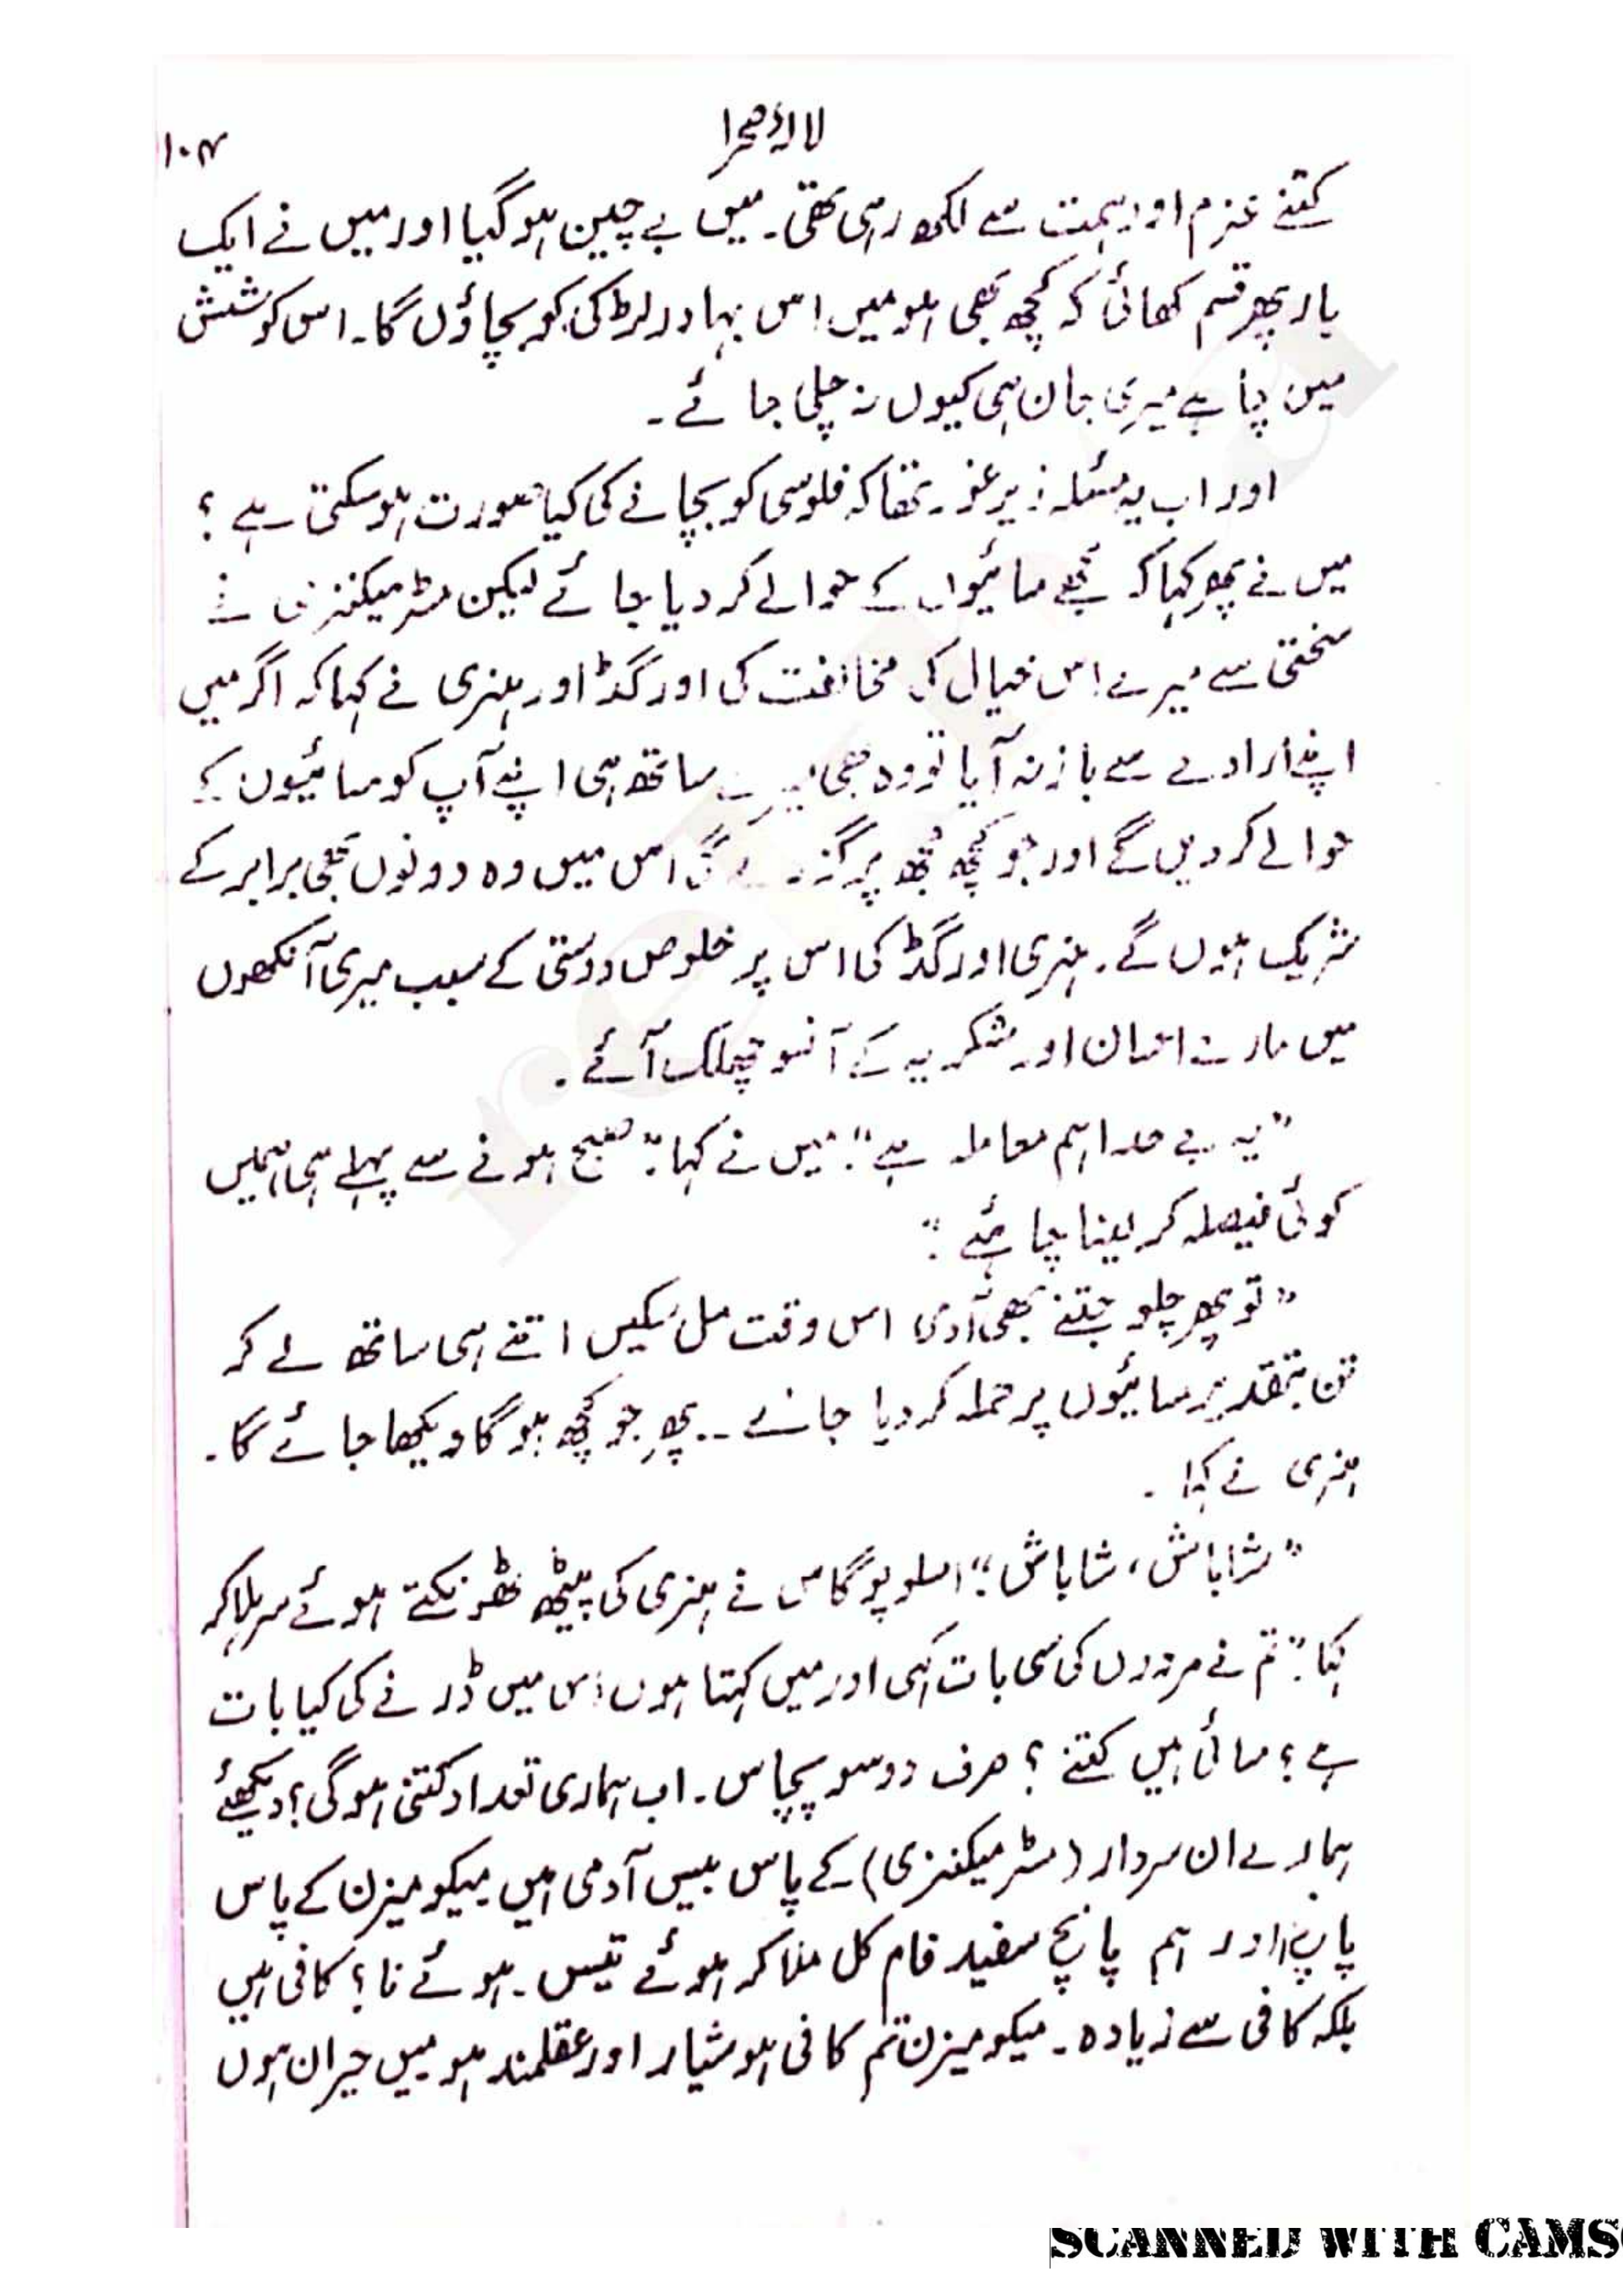 لالۂ صحرا
۱۰۴
کتنے عزم اور ہمت سے لکھ رہی تھی۔ میں بے چین ہو گیا اور میں نے ایک
بار پھر قسم کھائی کہ کچھ بھی ہو میں اس بہادر لڑکی کو بچاؤں گا۔ اس کوشش
میں چاہے میری جان ہی کیوں نہ چلی جائے۔
اور اب یہ مسئلہ زیر غور تھا کہ فلوسی کو بچانے کی کیا صورت ہو سکتی ہے؟
میں نے پھر کہا کہ مجھے مسائیوں کے حوالے کر دیا جائے لیکن مسٹر میکنزی نے
سختی سے میرے اس خیال کی مخالفت کی اور گڈ اور ہنری نے کہا کہ اگر میں
اپنے ارادے سے باز نہ آیا تو وہ بھی میرے ساتھ ہی اپنے آپ کو مسائیوں کے
حوالے کر دیں گے اور جو کچھ مجھ پر گزرے گی اس میں وہ دونوں بھی برابر کے
شریک ہوں گے۔ ہنری اور گڈ کی اس پر خلوص دوستی کے سبب میری آنکھوں
میں مارے احسان اور شکریہ کے آنسو چھلک آئے۔
"یہ بے حد اہم معاملہ ہے" میں نے کہا: "صبح ہونے سے پہلے ہی ہمیں
کوئی فیصلہ کر لینا چاہئے"
"تو پھر چلو جتنے بھی آدمی اس وقت مل سکیں اتنے ہی ساتھ لے کر
تن بتقدیر مسائیوں پر حملہ کر دیا جائے ۔۔ پھر جو کچھ ہو گا دیکھا جائے گا۔
ہنری نے کہا۔
"شاباش، شاباش" امسلوپوگاس نے ہنری کی پیٹھ ٹھونکتے ہوئے سر ہلا کر
کہا: "تم نے مردوں کی سی بات کہی اور میں کہتا ہوں اس میں ڈرنے کی کیا بات
ہے؟ مسائی ہیں کتنے؟ صرف دو سو پچاس۔ اب ہماری تعداد کتنی ہو گی؟ دیکھئے
ہمارے ان سردار (مسٹر میکنزی) کے پاس بیس آدمی ہیں میکومیزن کے پاس
پانچ اور ہم پانچ سفید فام کل ملا کر ہوئے تیس۔ ہوئے نا؟ کافی ہیں
بلکہ کافی سے زیادہ۔ میکومیزن تم کافی ہوشیار اور عقلمند ہو میں حیران ہوں
SCANNED WITH CAMS